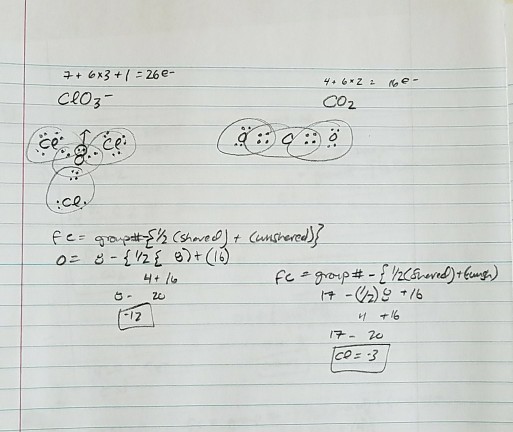 7 + 6x3 + 1 = 26e-
ClO3-
4 + 6x2 = 16e-
CO2
Cl O Cl
Cl
O C O
FC = group# - {1/2 (shared) + (unshared)}
O = 8 - {1/2 { 8) + (16)
4 + 16
8 - 20
-12
FC = group# - {1/2(Shared) + (unsh)
17 - (1/2) 8 + 16
4 + 16
17 - 20
Cl = -3